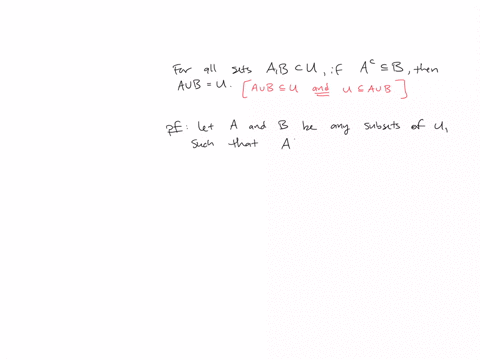 For all sets A,B ⊂ U, if Aᶜ ⊆ B, then
A∪B = U. [A∪B ⊆ U and U ⊆ A∪B]
pf: let A and B be any subsets of U,
such that A